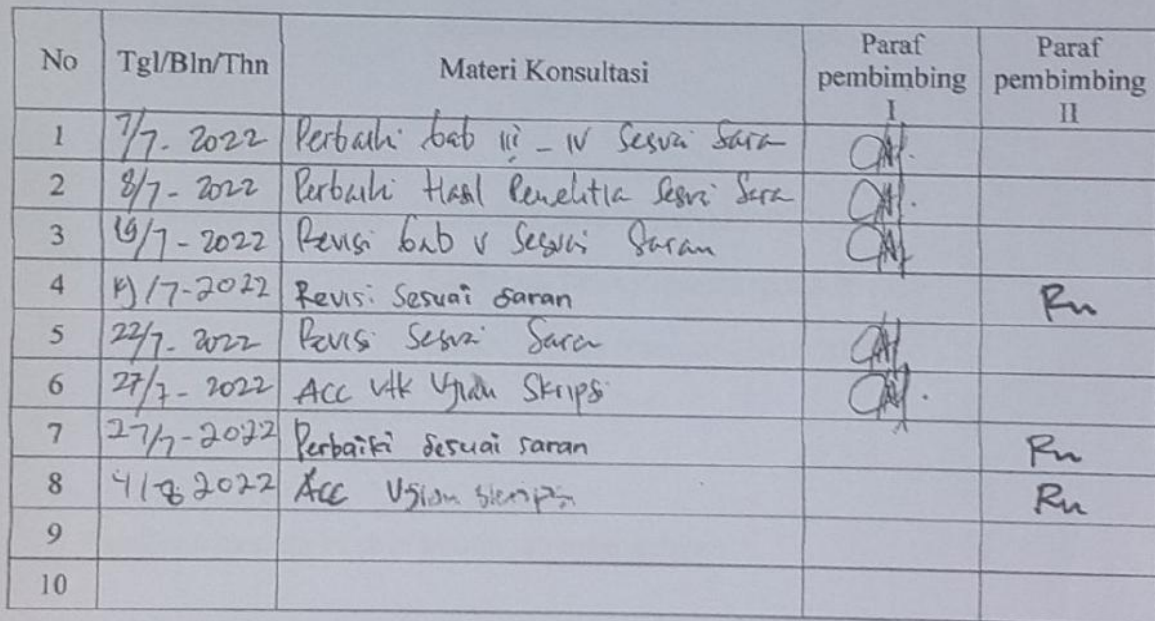 No Tgl/Bln/Thn Materi Konsultasi Paraf pembimbing I Paraf pembimbing II
1 7/7. 2022 Perbaiki bab III - IV Sesuai Sara
2 8/7 - 2022 Perbaiki Hasil Penelitia Sesuai Sara
3 19/7 - 2022 Revisi bab V Sesuai Saran
4 /7-2022 Revisi Sesuai saran Rn
5 22/7. 2022 Revisi Sesuai Saran
6 27/7 - 2022 ACC utk Ujian Skripsi
7 27/7-2022 Perbaiki sesuai saran Rn
8 4/8 2022 Acc Ujian skripsi Rn
9
10